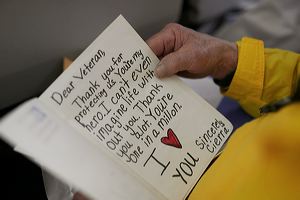 Dear Veteran
Thank you for
protecting us. You're my
hero. I can't even
imagine life with
out you. Thank
you alot. You're
one in a million
I ♥
You
Sincerely
Cierra